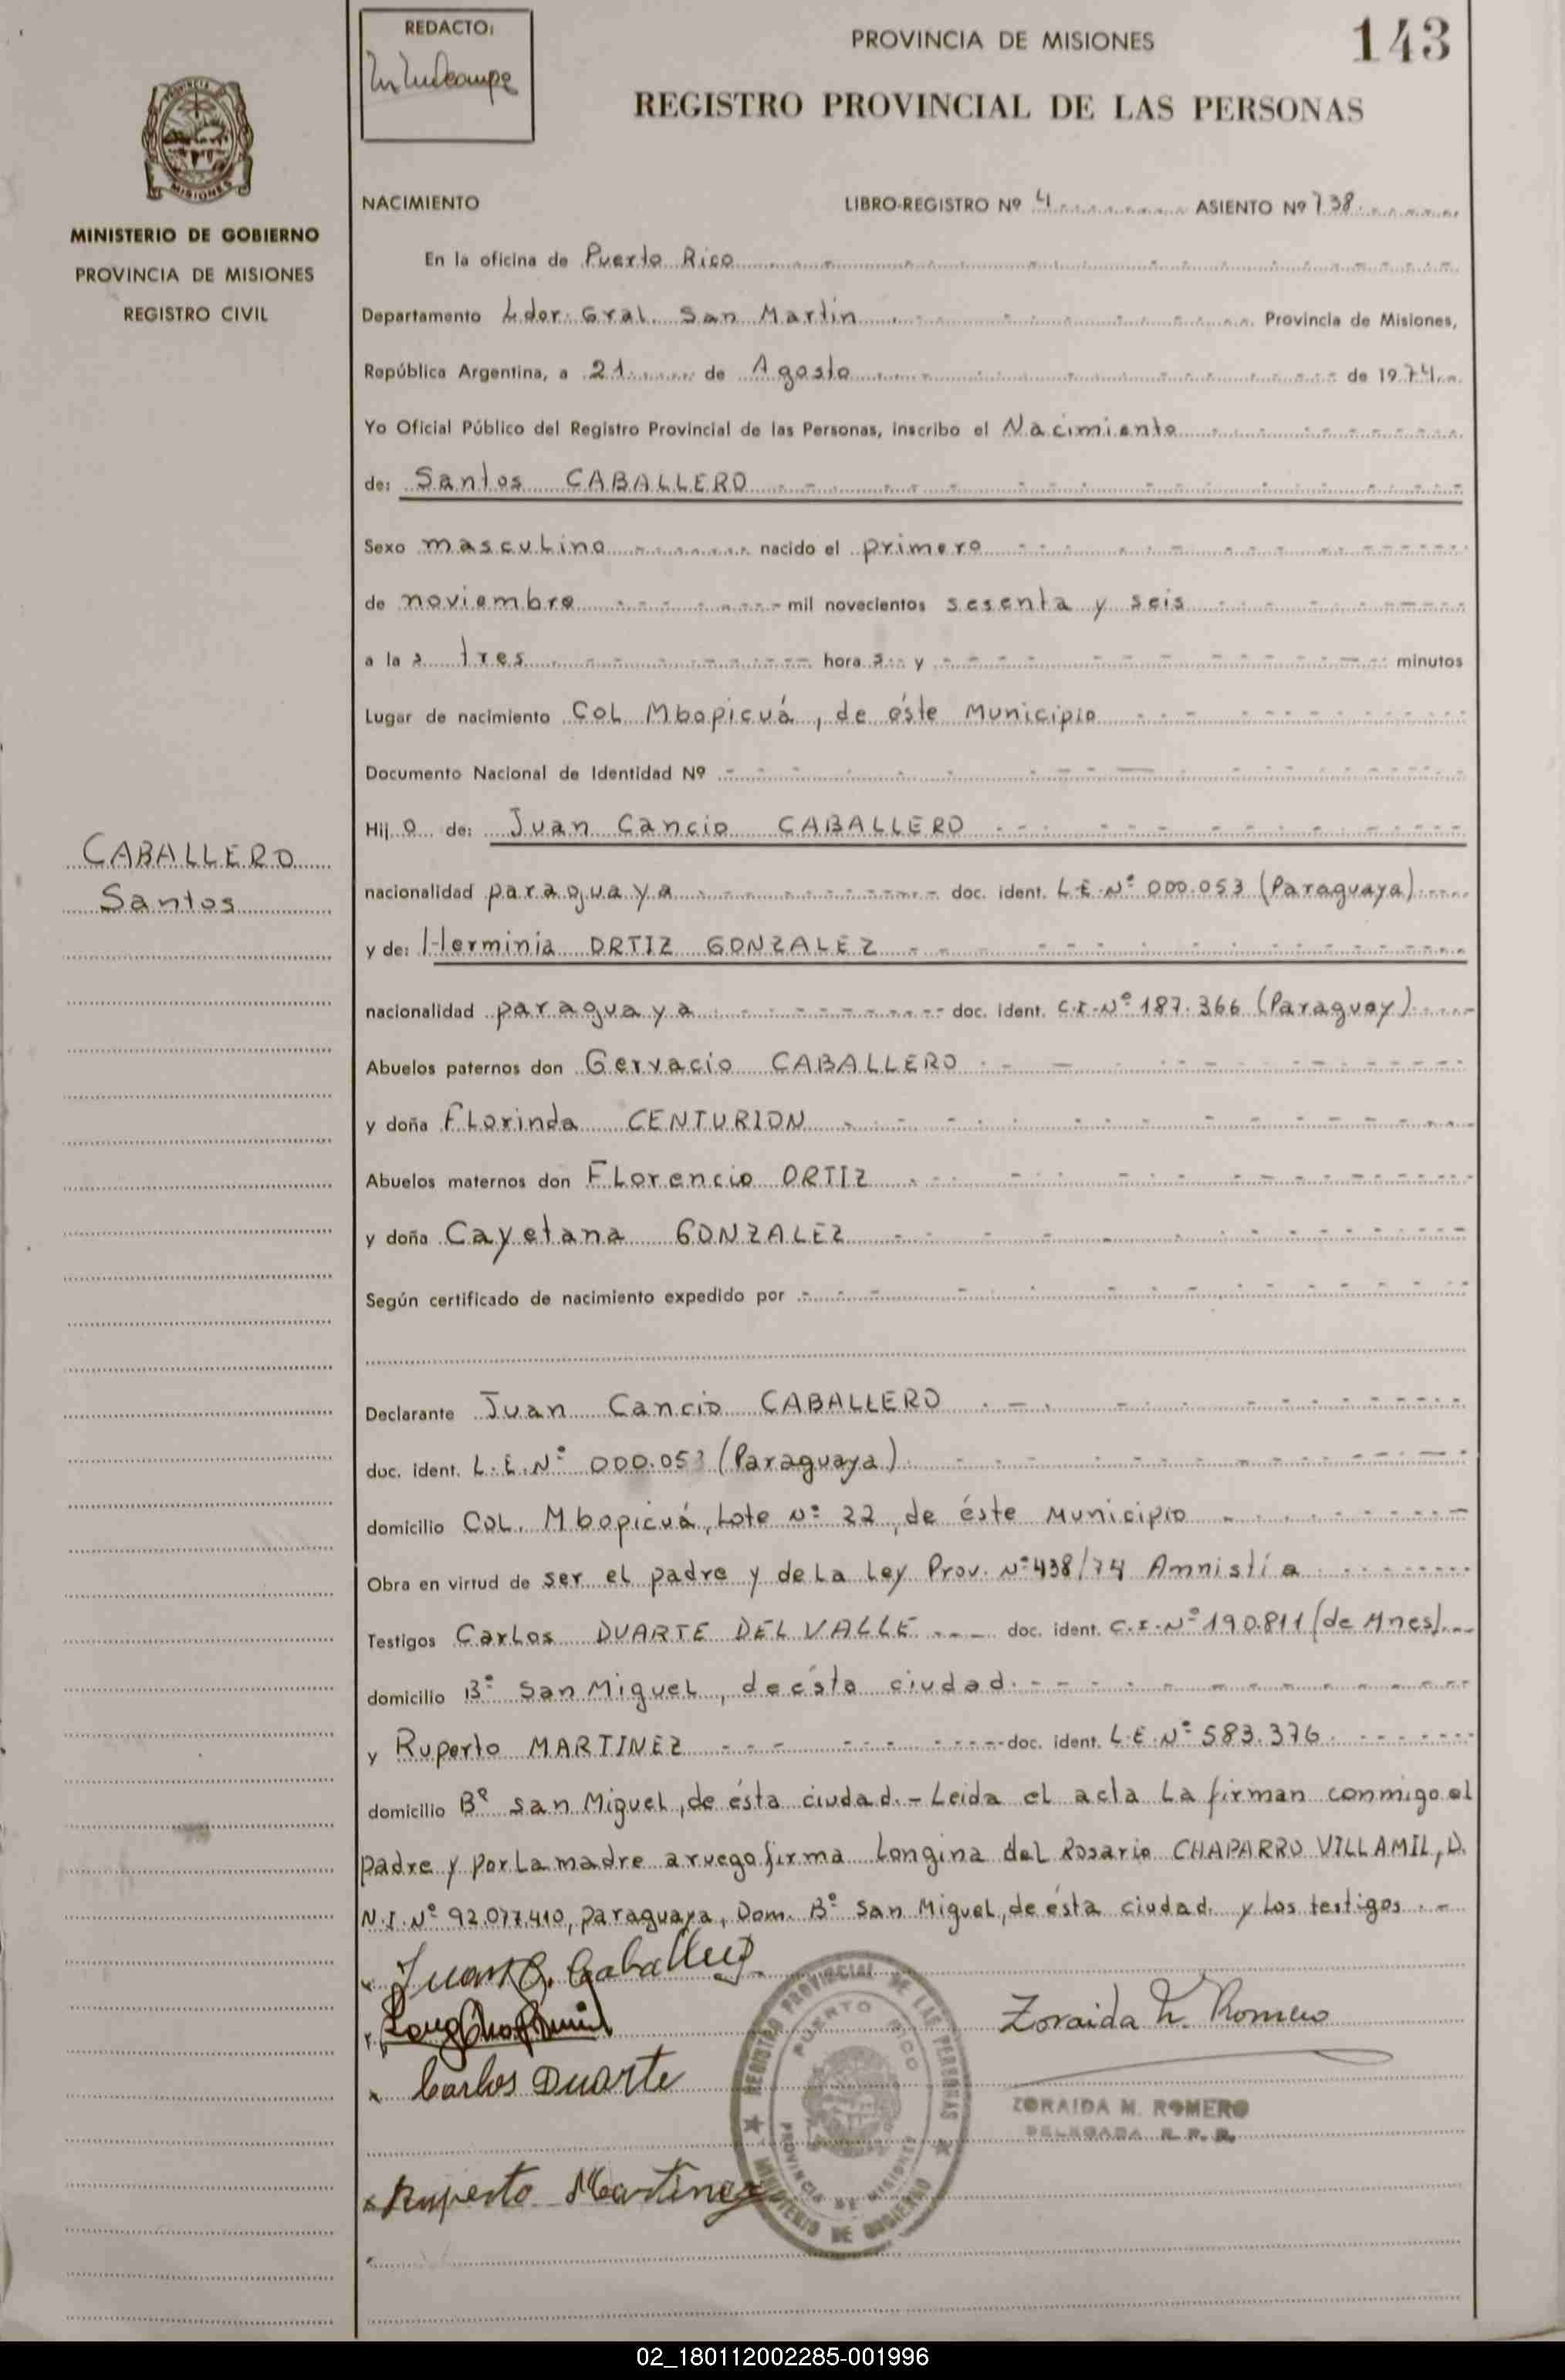 REDACTO:
PROVINCIA DE MISIONES
143
REGISTRO PROVINCIAL DE LAS PERSONAS
PROVINCIA DE
MISIONES
MINISTERIO DE GOBIERNO
PROVINCIA DE MISIONES
REGISTRO CIVIL
NACIMIENTO LIBRO-REGISTRO Nº 4 ASIENTO Nº 738
En la oficina de Puerto Rico
Departamento Ldor. Gral. San Martin Provincia de Misiones,
República Argentina, a 21 de Agosto de 1974
Yo Oficial Público del Registro Provincial de las Personas, inscribo el Nacimiento
de: Santos CABALLERO
Sexo masculino nacido el primero
de noviembre mil novecientos sesenta y seis
a la s tres hora s y minutos
Lugar de nacimiento Col Mbopicuá, de éste Municipio
Documento Nacional de Identidad Nº
Hij o de: Juan Cancio CABALLERO
CABALLERO
Santos
nacionalidad paraguaya doc. ident. L.E.Nº 000.053 (Paraguaya)
y de: Herminia ORTIZ GONZALEZ
nacionalidad paraguaya doc. ident. C.I.Nº 187.366 (Paraguay)
Abuelos paternos don Gervacio CABALLERO
y doña Florinda CENTURION
Abuelos maternos don Florencio ORTIZ
y doña Cayetana GONZALEZ
Según certificado de nacimiento expedido por
Declarante Juan Cancio CABALLERO
doc. ident. L.E.Nº 000.053 (Paraguaya)
domicilio Col. Mbopicuá, Lote Nº 22, de éste Municipio
Obra en virtud de ser el padre y de la Ley Prov. Nº 438/74 Amnistía
Testigos Carlos DUARTE DEL VALLE doc. ident. C.I.Nº 190.811 (de Mnes)
domicilio Bº San Miguel, de ésta ciudad.
y Ruperto MARTINEZ doc. ident. L.E.Nº 583.376
domicilio Bº San Miguel, de ésta ciudad.- Leida el acta la firman conmigo el
padre y por la madre a ruego firma Longina del Rosario CHAPARRO VILLAMIL, D.
N.I.Nº 92.077.410, paraguaya, Dom. Bº San Miguel, de ésta ciudad. y los testigos
Juan C. Caballero
Zoraida M. Romero
Carlos Duarte
ZORAIDA M. ROMERO
DELEGADA R. P. P.
Ruperto Martinez
REGISTRO PROVINCIAL DE LAS PERSONAS
PUERTO RICO
PROVINCIA DE MISIONES
MINISTERIO DE GOBIERNO
02_180112002285-001996